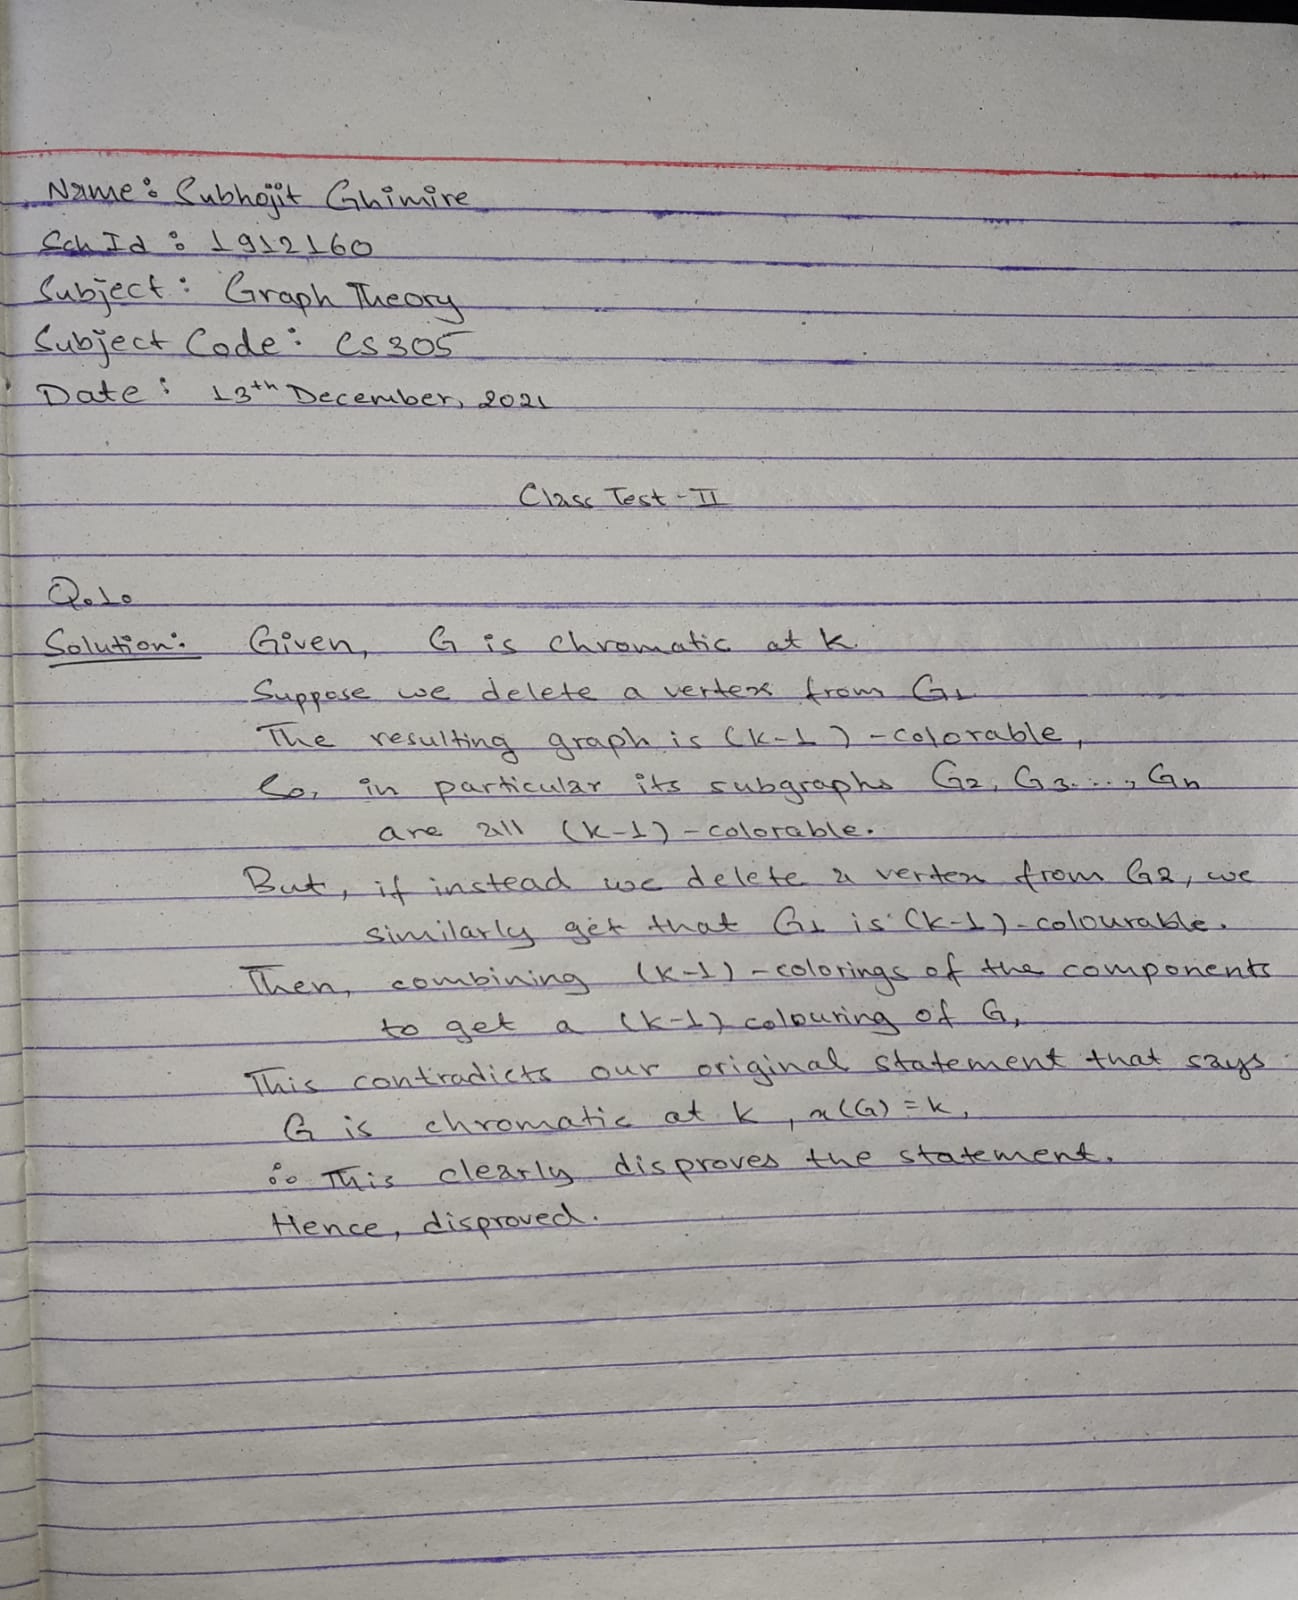 Name: Subhojit Ghimire
Sch Id: 1912160
Subject: Graph Theory
Subject Code: CS305
Date: 13th December, 2021
Class Test - II
Q.1.
Solution: Given, G is chromatic at k.
Suppose we delete a vertex from G1
The resulting graph is (k-1)-colorable,
So, in particular its subgraphs G2, G3...., Gn
are all (k-1)-colorable.
But, if instead we delete a vertex from G2, we
similarly get that G1 is (k-1)-colourable.
Then, combining (k-1)-colorings of the components
to get a (k-1) colouring of G,
This contradicts our original statement that says
G is chromatic at k, x(G) = k,
∴ This clearly disproves the statement.
Hence, disproved.